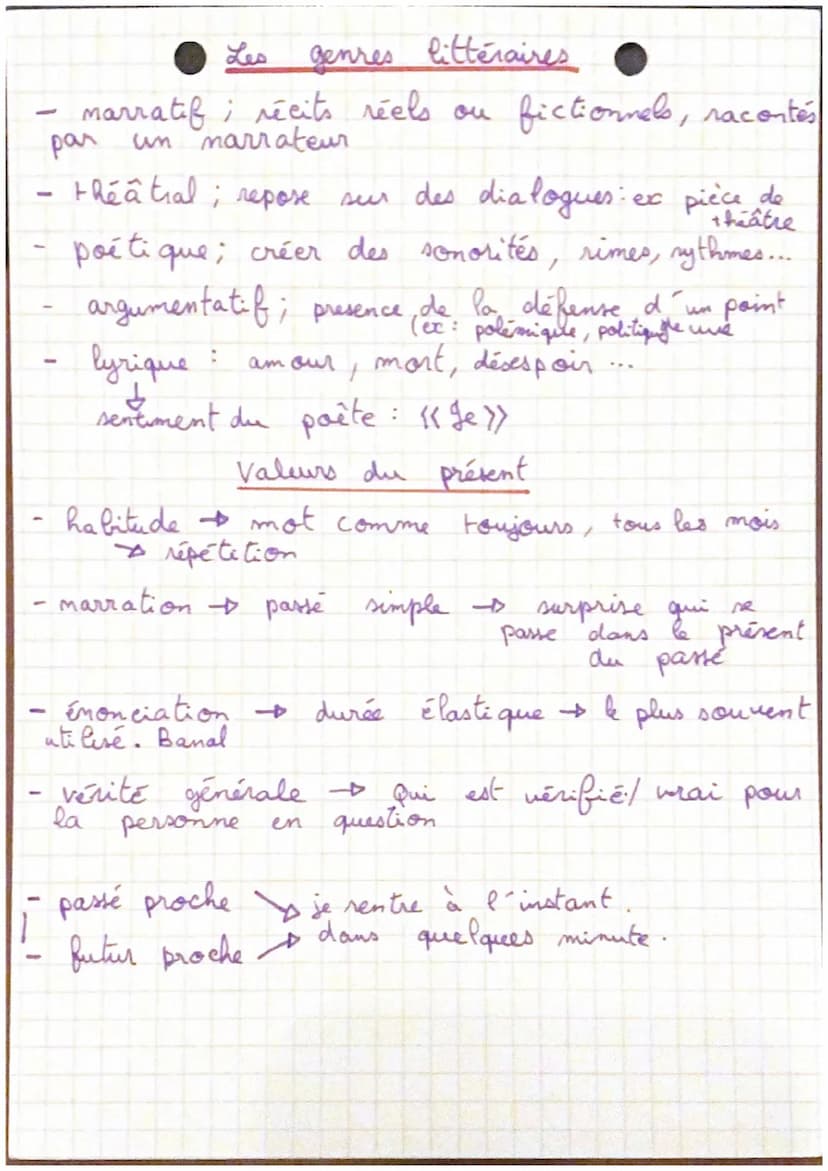 Les genres littéraires
- narratif ; récits réels ou fictionnels, racontés
par un narrateur
- théâtral ; repose sur des dialogues : ex pièce de
théâtre
- poétique ; créer des sonorités, rimes, rythmes...
- argumentatif ; presence de la défense d'un point
(ex : polémique, politique de vue
- lyrique : amour, mort, désespoir ...
sentiment du poête : << Je >>
Valeurs du présent
- habitude → mot comme toujours, tous les mois
→ répétition
- narration → passé simple → surprise qui se
passe dans le présent
du passé
- énonciation → durée élastique → le plus souvent
utilisé. Banal
- vérité générale → Qui est vérifié / vrai pour
la personne en question
- passé proche → je rentre à l'instant.
- futur proche → dans quelques minute.